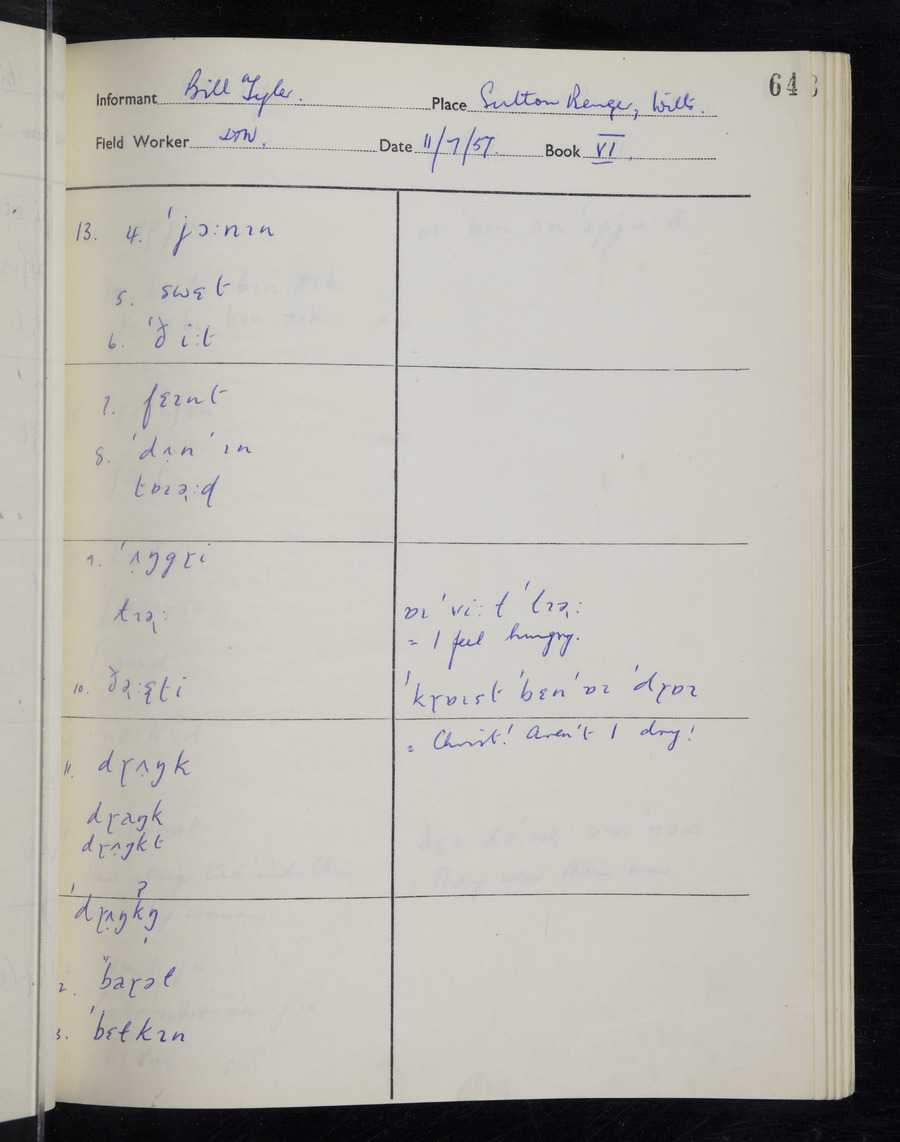 64
Informant Bill Tyler. Place Sutton Benger, Wilts.
Field Worker Date 11/7/57. Book VI
13. 4. ˈjɔ:nɪn
5. swɛ̣t
6. ˈð̣i:t
7. fɛɪnt
8. ˈdʌ̣n ˈɪn
tɒɪə̣ɽ:d
9. ˈʌ̣ŋgɽi
tɪə̣ɽ: ɒɪ ˈvi:ɫ ˈlɪə̣ɽ:
= I feel hungry.
10. ˈkɽɒɪst ˈbɛn ˈɒɪ ˈdɽɒɪ
= Christ! Aren't I dry!
11. dɽʌ̣ŋk
dɽaŋk
dɽʌ̣ŋkt
ˈdɽʌ̣ŋkŋ̩
2. ˈbaɽəl
3. ˈbɛtkɪn